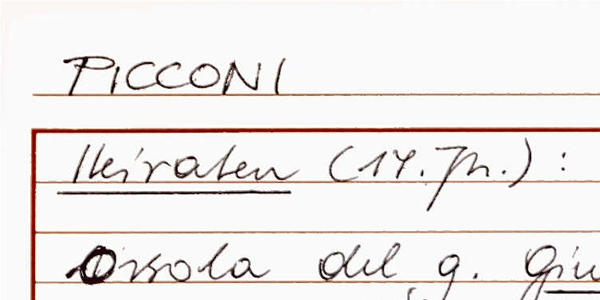 PICCONI
Heiraten (17. Jh.) :
Orsola del q. Giu